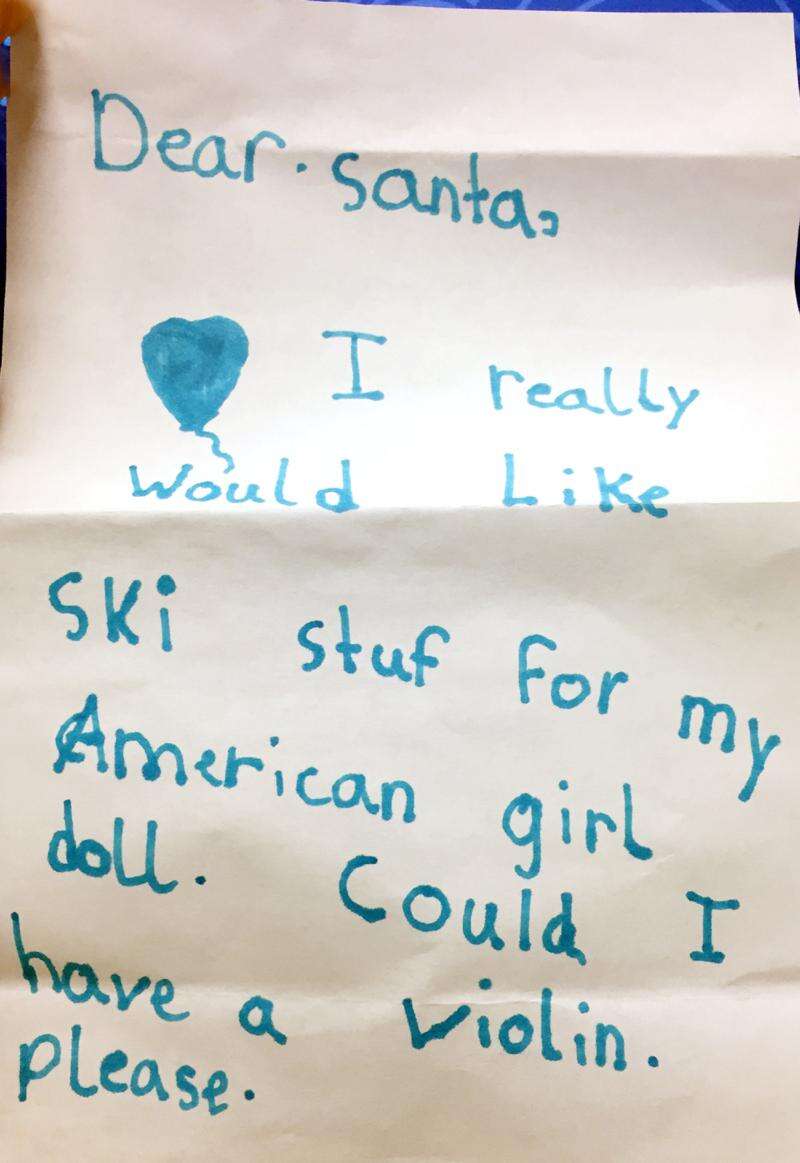 Dear. Santa,
I really
would Like
SKi stuf for my
American girl
doll. Could I
have a violin.
please.